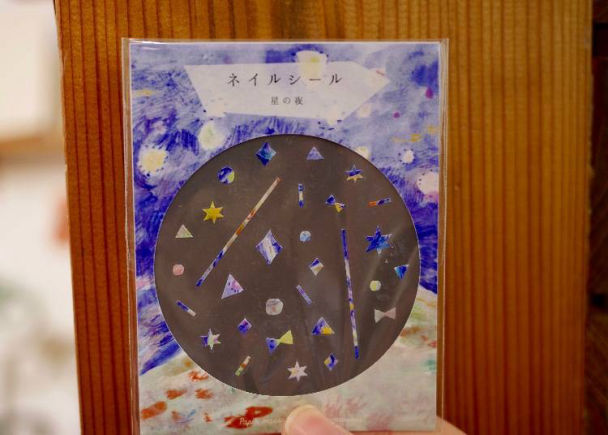 ネイルシール
星の夜